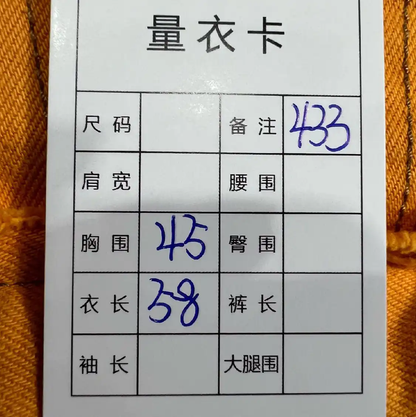 量衣卡
尺码 备注 433
肩宽 腰围
胸围 45 臀围
衣长 58 裤长
袖长 大腿围